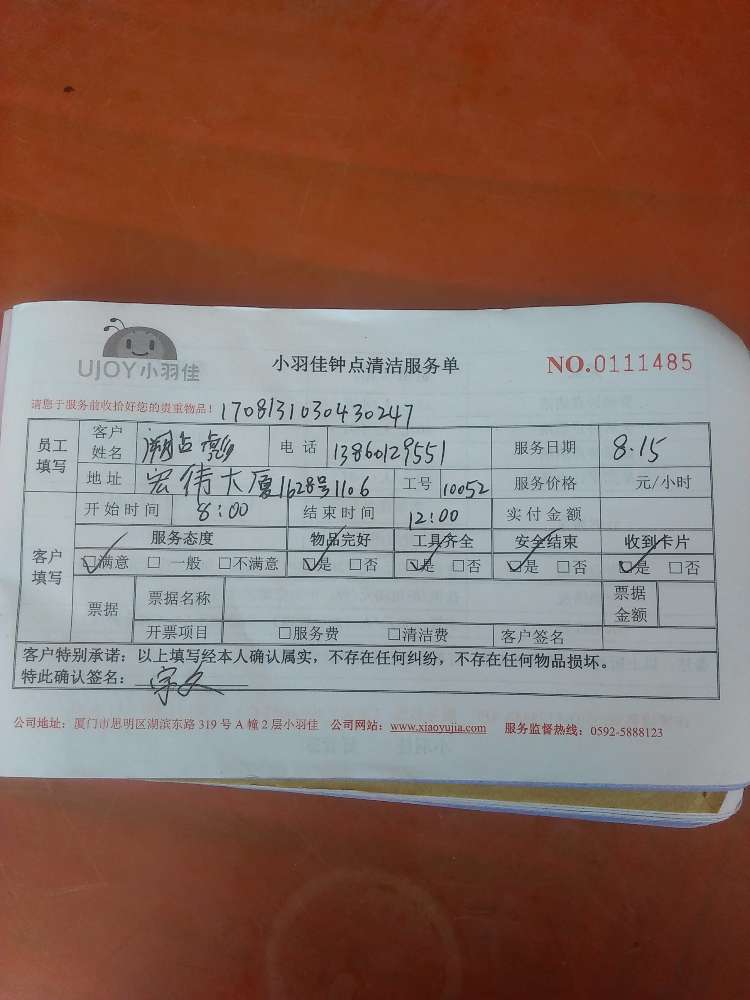 UJOY小羽佳
小羽佳钟点清洁服务单
NO.0111485
请您于服务前收拾好您的贵重物品！ 1708131030430247
员工填写 客户姓名 电话 13860129551 服务日期 8.15
地址 宏伟大厦1628号1106 工号 10052 服务价格 元/小时
客户填写 开始时间 8:00 结束时间 12:00 实付金额
服务态度 物品完好 工具齐全 安全结束 收到卡片
☑满意 □一般 □不满意 ☑是 □否 ☑是 □否 ☑是 □否 ☑是 □否
票据 票据名称 票据金额
开票项目 □服务费 □清洁费 客户签名
客户特别承诺：以上填写经本人确认属实，不存在任何纠纷，不存在任何物品损坏。
特此确认签名：
公司地址：厦门市思明区湖滨东路 319 号 A 幢 2 层小羽佳 公司网站：www.xiaoyujia.com 服务监督热线：0592-5888123